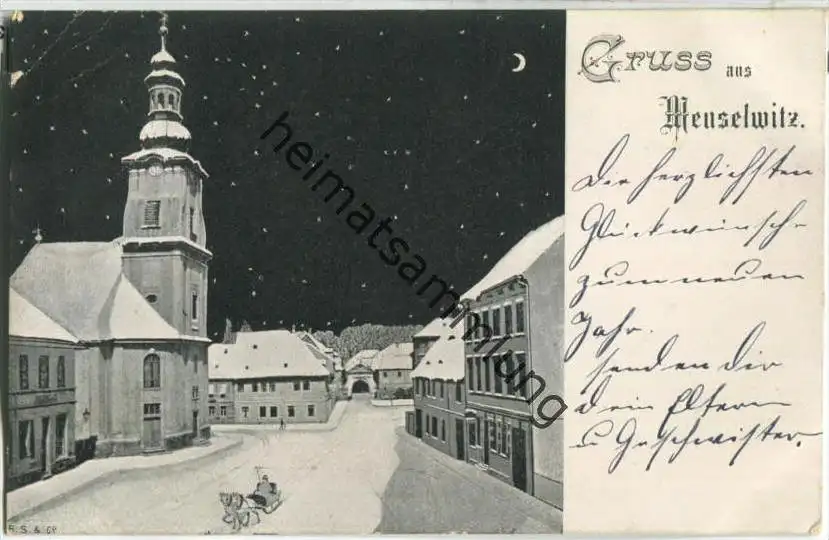 Gruss aus
Meuselwitz.
Die herzlichsten
Glückwünsche
zum neuen
Jahr.
senden dir
dein Eltern
u Geschwister.
R. S. & Co
heimatsammlung